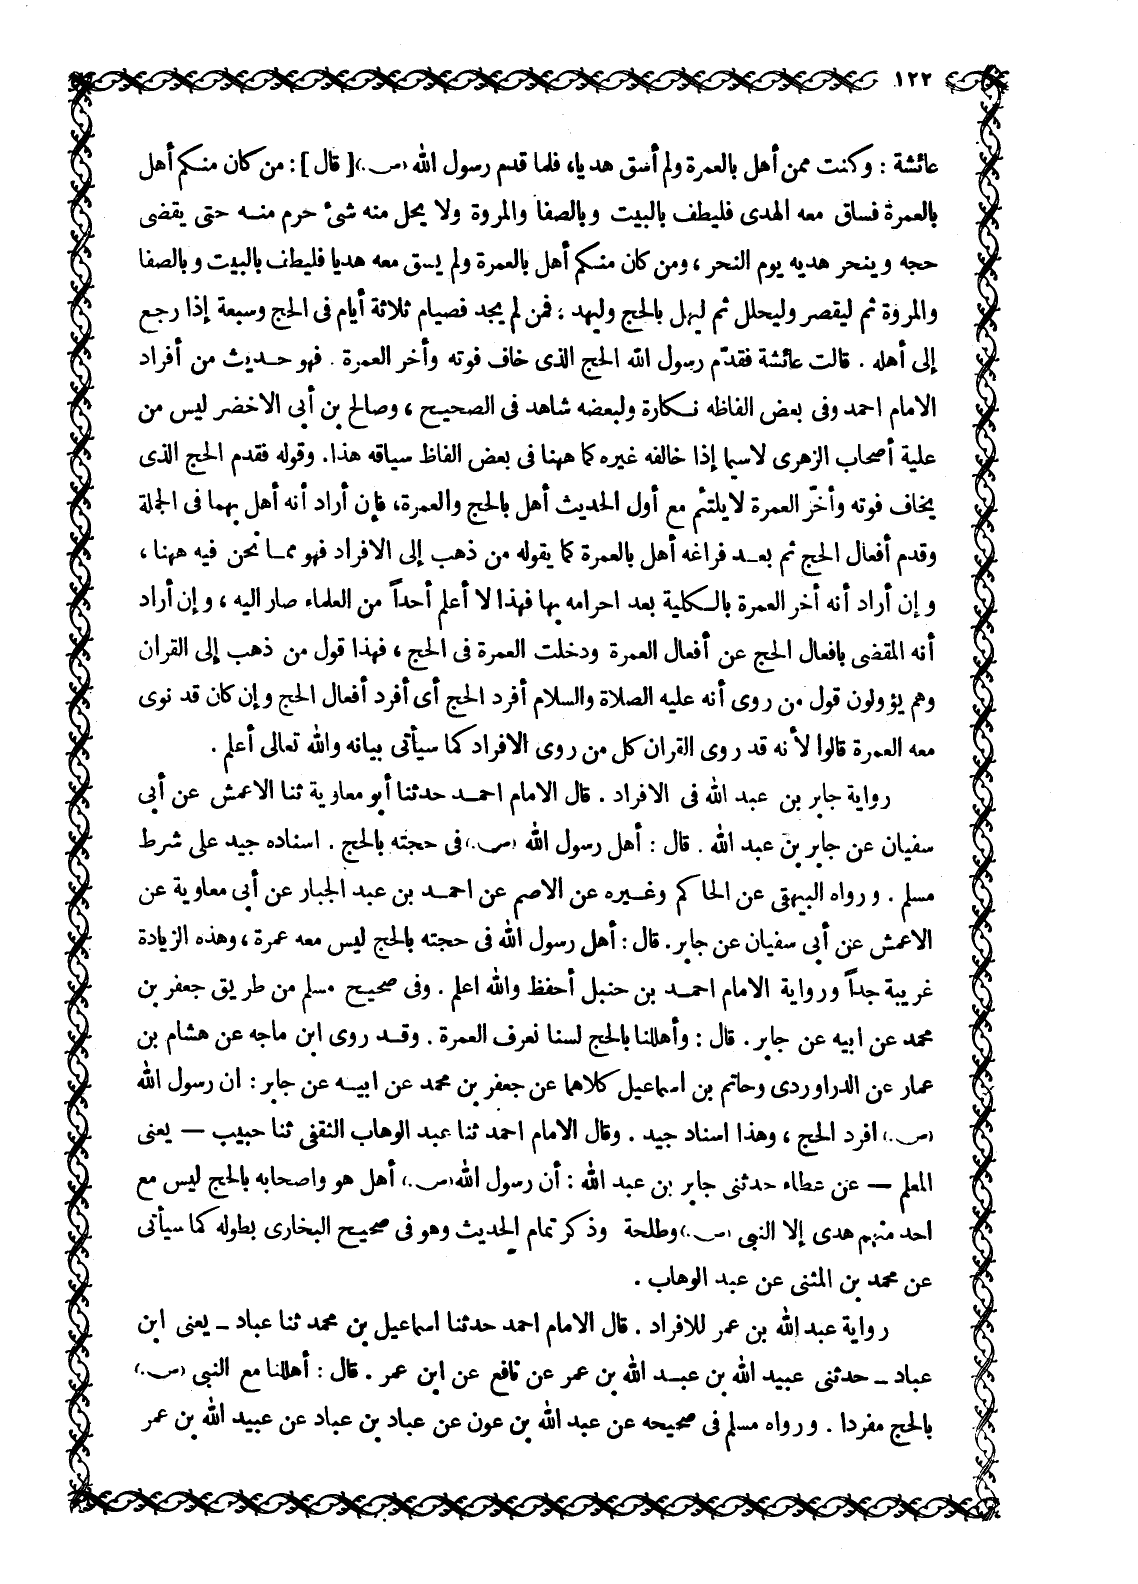 ١٢٢
عائشة : وكنت ممن أهل بالعمرة ولم أسق هديا، فلما قدم رسول الله (ص.) [ قال ] : من كان منكم أهل
بالعمرة فساق معه الهدى فليطف بالبيت وبالصفا والمروة ولا يحل منه شئ حرم منه حتى يقضى
حجه وينحر هديه يوم النحر ، ومن كان منكم أهل بالعمرة ولم يسق معه هديا فليطف بالبيت وبالصفا
والمروة ثم ليقصر وليحلل ثم ليهل بالحج وليهد : فمن لم يجد فصيام ثلاثة أيام فى الحج وسبعة إذا رجع
إلى أهله . قالت عائشة فقدّم رسول الله الحج الذى خاف فوته وأخر العمرة . فهو حديث من أفراد
الامام احمد وفى بعض الفاظه نكارة ولبعضه شاهد فى الصحيح ، وصالح بن أبى الاخضر ليس من
علية أصحاب الزهرى لاسيما إذا خالفه غيره كما ههنا فى بعض الفاظ سياقه هذا. وقوله فقدم الحج الذى
يخاف فوته وأخّر العمرة لايلتئم مع أول الحديث أهل بالحج والعمرة، فإن أراد أنه أهل بهما فى الجملة
وقدم أفعال الحج ثم بعد فراغه أهل بالعمرة كما يقوله من ذهب إلى الافراد فهو مما نحن فيه ههنا ،
وإن أراد أنه أخر العمرة بالكلية بعد احرامه بها فهذا لا أعلم أحداً من العلماء صار اليه ، وإن أراد
أنه المقضى بافعال الحج عن أفعال العمرة ودخلت العمرة فى الحج ، فهذا قول من ذهب إلى القران
وهم يؤولون قول من روى أنه عليه الصلاة والسلام أفرد الحج أى أفرد أفعال الحج وإن كان قد نوى
معه العمرة قالوا لأنه قد روى القران كل من روى الافراد كما سيأتى بيانه والله تعالى أعلم .
رواية جابر بن عبد الله فى الافراد . قال الامام احمد حدثنا أبو معاوية ثنا الاعمش عن أبى
سفيان عن جابر بن عبد الله . قال : أهل رسول الله (ص.) فى حجته بالحج . اسناده جيد على شرط
مسلم . ورواه البيهقى عن الحاكم وغيره عن الاصم عن احمد بن عبد الجبار عن أبى معاوية عن
الاعمش عن أبى سفيان عن جابر. قال : أهل رسول الله فى حجته بالحج ليس معه عمرة ، وهذه الزيادة
غريبة جداً ورواية الامام احمد بن حنبل أحفظ والله اعلم . وفى صحيح مسلم من طريق جعفر بن
محمد عن ابيه عن جابر. قال : وأهللنا بالحج لسنا نعرف العمرة . وقد روى ابن ماجه عن هشام بن
عمار عن الدراوردى وحاتم بن اسماعيل كلاهما عن جعفر بن محمد عن ابيه عن جابر : ان رسول الله
(ص.) افرد الحج ، وهذا اسناد جيد . وقال الامام احمد ثنا عبد الوهاب الثقفى ثنا حبيب — يعنى
المعلم — عن عطاء حدثنى جابر بن عبد الله : أن رسول الله (ص.) أهل هو واصحابه بالحج ليس مع
احد منهم هدى إلا النبى (ص.) وطلحة وذكر تمام الحديث وهو فى صحيح البخارى بطوله كما سيأتى
عن محمد بن المثنى عن عبد الوهاب .
رواية عبد الله بن عمر للافراد . قال الامام احمد حدثنا اسماعيل بن محمد ثنا عباد ــ يعنى ابن
عباد ــ حدثنى عبيد الله بن عبد الله بن عمر عن نافع عن ابن عمر . قال : أهللنا مع النبى (ص.)
بالحج مفردا . ورواه مسلم فى صحيحه عن عبد الله بن عون عن عباد بن عباد عن عبيد الله بن عمر